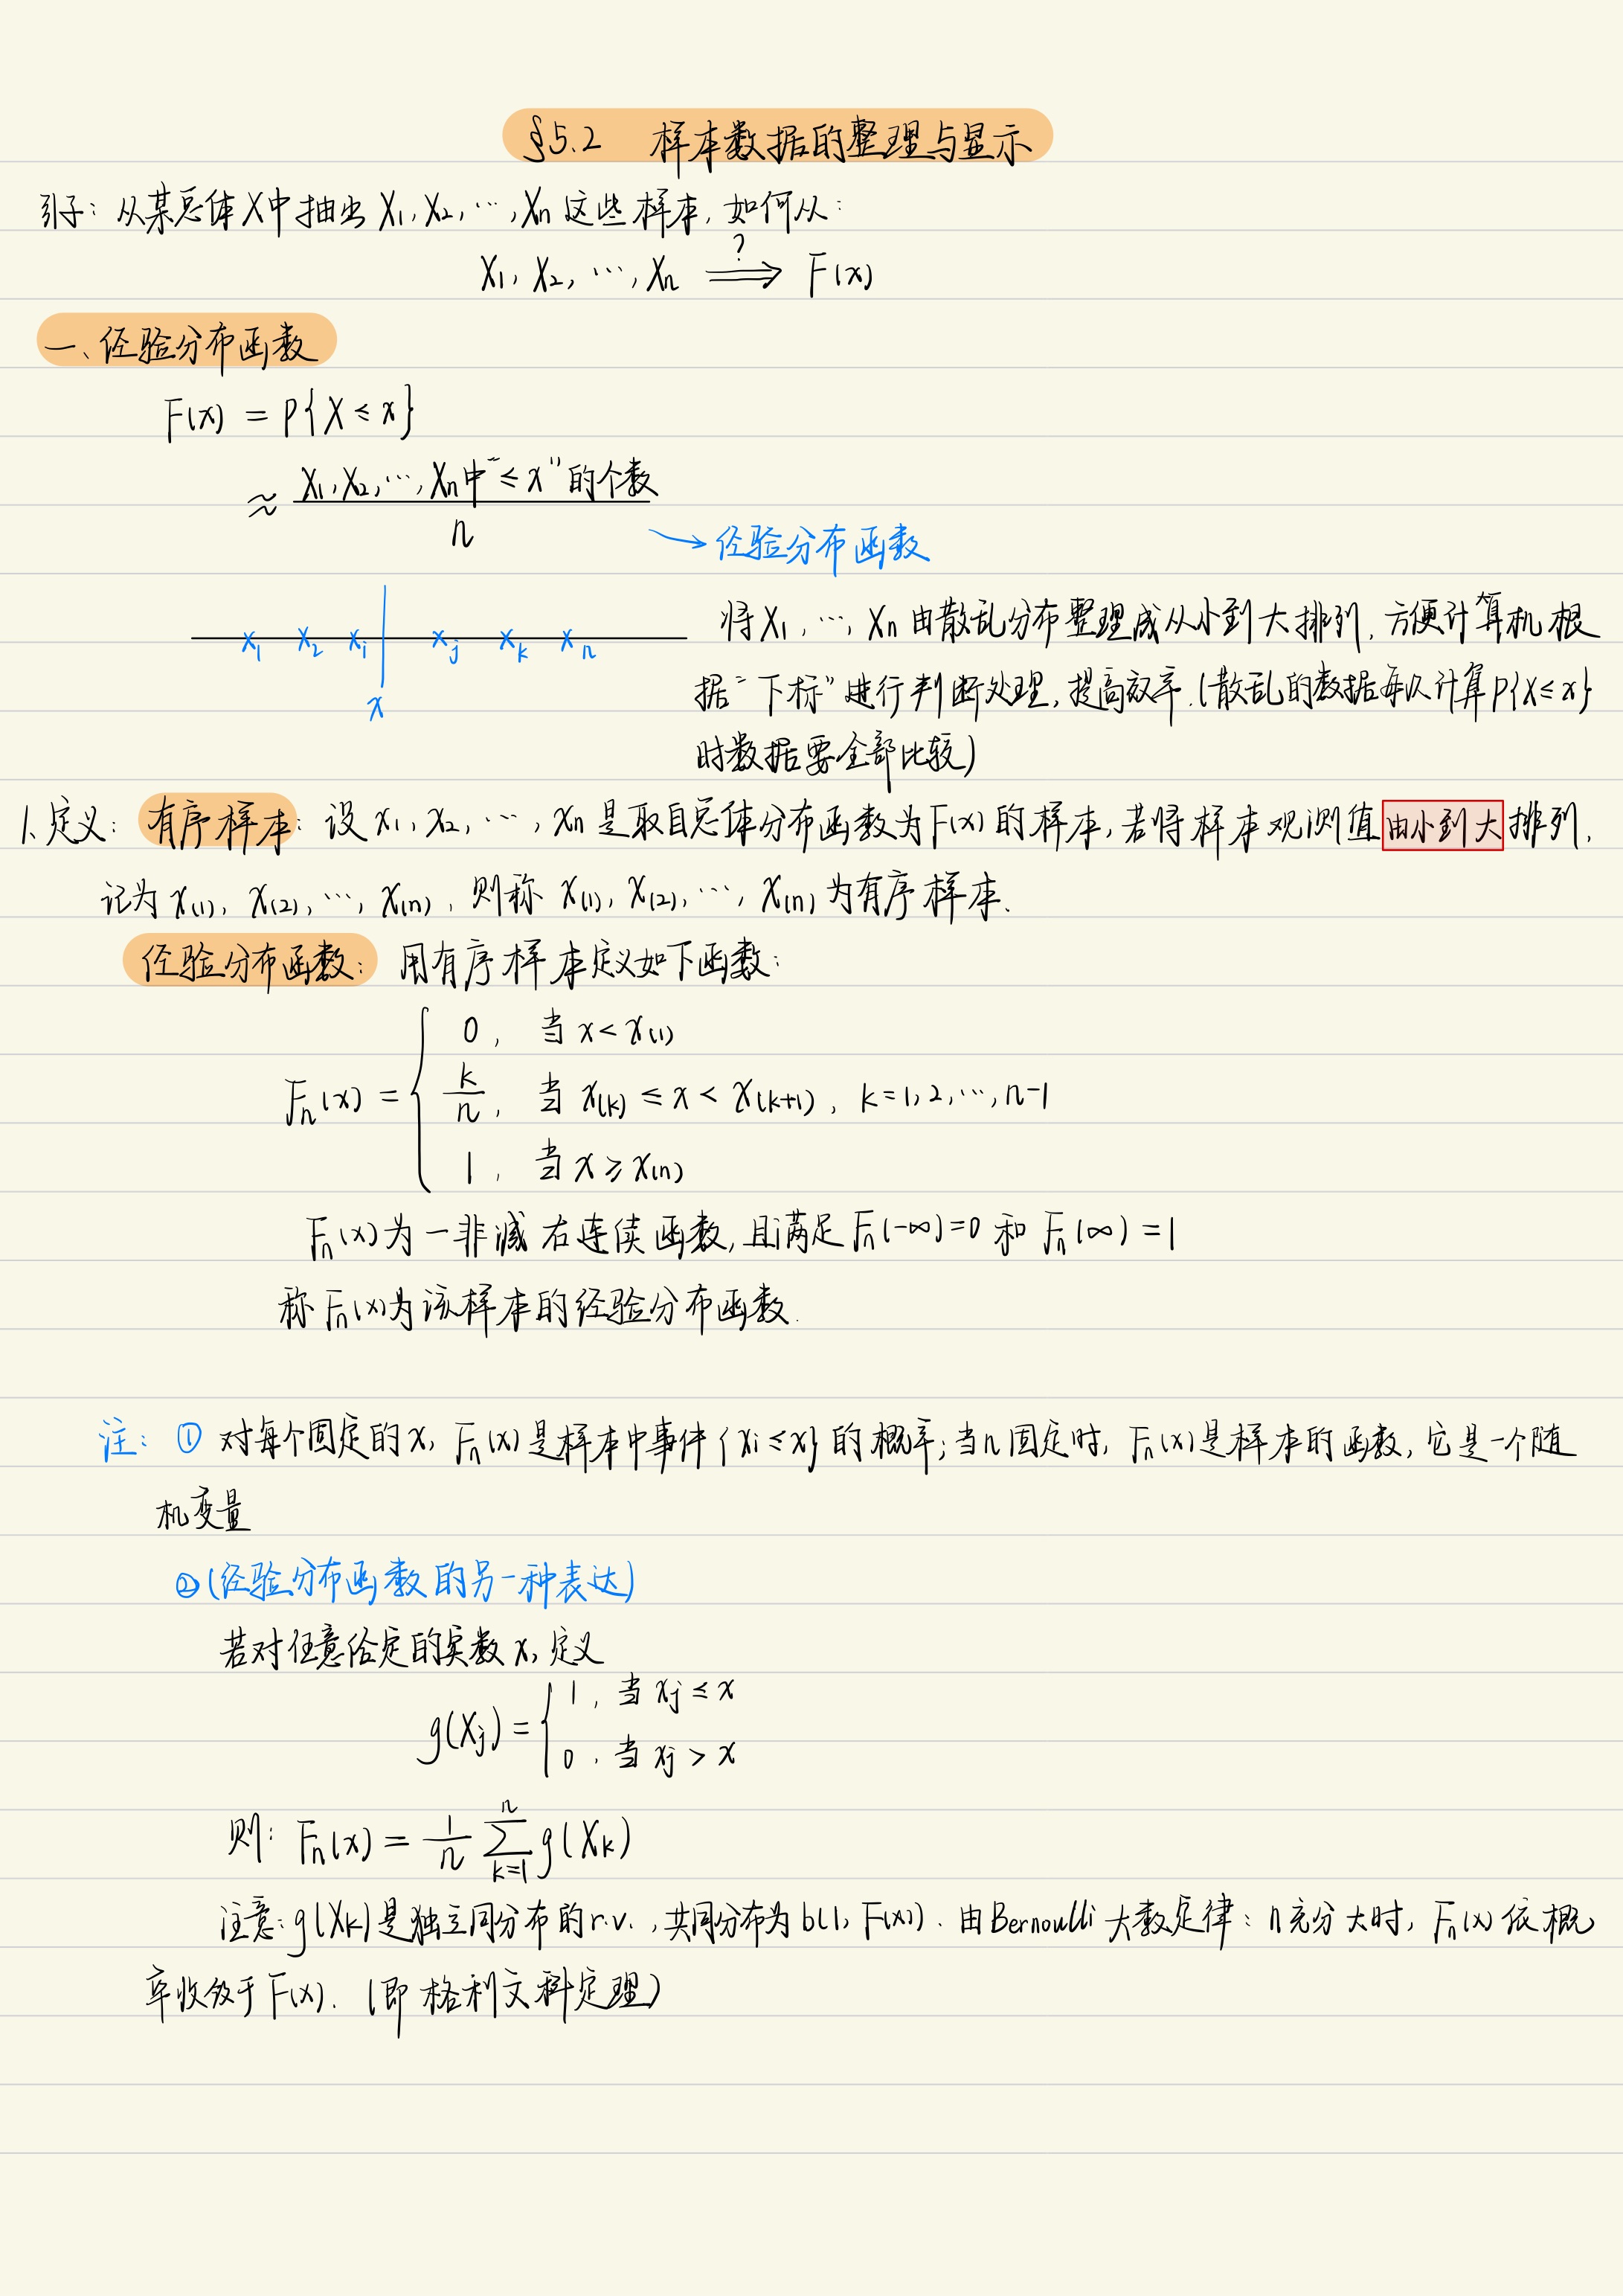 §5.2 样本数据的整理与显示
引子：从某总体X中抽出 X₁, X₂, ⋯, Xₙ 这些样本，如何从：
X₁, X₂, ⋯, Xₙ ⟹(?) F(x)
一、经验分布函数
F(x) = P{X ≤ x}
≈ X₁, X₂, ⋯, Xₙ中“≤ x”的个数 / n
→ 经验分布函数
将X₁, ⋯, Xₙ 由散乱分布整理成从小到大排列，方便计算机根
x₁ x₂ xᵢ xⱼ xₖ xₙ
x
据“下标”进行判断处理，提高效率.(散乱的数据每次计算P{X≤x}
时数据要全部比较)
1、定义：有序样本：设 x₁, x₂, ⋯, xₙ 是取自总体分布函数为F(x)的样本，若将样本观测值由小到大排列，
记为 x₍₁₎, x₍₂₎, ⋯, x₍ₙ₎，则称 x₍₁₎, x₍₂₎, ⋯, x₍ₙ₎ 为有序样本.
经验分布函数：用有序样本定义如下函数：
0, 当 x < x₍₁₎
Fₙ(x) = { k/n, 当 x₍ₖ₎ ≤ x < x₍ₖ₊₁₎, k=1, 2, ⋯, n-1
1, 当 x ≥ x₍ₙ₎
Fₙ(x)为一非减右连续函数，且满足Fₙ(-∞)=0 和 Fₙ(∞)=1
称Fₙ(x)为该样本的经验分布函数.
注：① 对每个固定的x, Fₙ(x)是样本中事件{xᵢ≤x}的概率；当n固定时，Fₙ(x)是样本的函数，它是一个随
机变量
②(经验分布函数的另一种表达)
若对任意给定的实数x, 定义
g(Xⱼ) = { 1, 当 xⱼ ≤ x
0, 当 xⱼ > x
则：Fₙ(x) = 1/n ∑ₖ₌₁ⁿ g(Xₖ)
注意：g(Xₖ)是独立同分布的r.v.，共同分布为b(1, F(x)). 由Bernoulli大数定律：n充分大时，Fₙ(x)依概
率收敛于F(x). (即格利文科定理)